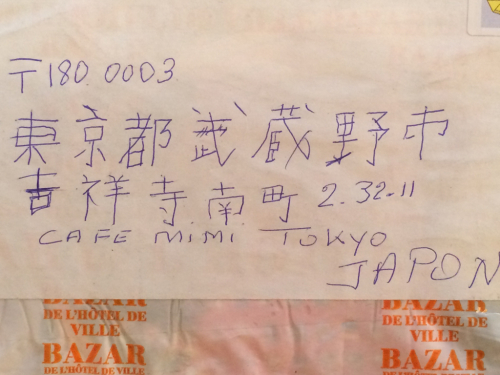 〒180 0003
東京都武蔵野市
吉祥寺南町 2.32.11
CAFE MIMI TOKYO
JAPON
BAZAR BAZAR
DE L'HÔTEL DE DE L'HÔTEL DE
VILLE VILLE
BAZAR BAZAR
DE L'HÔTEL DE VILLE DE L'HÔTEL DE VILLE